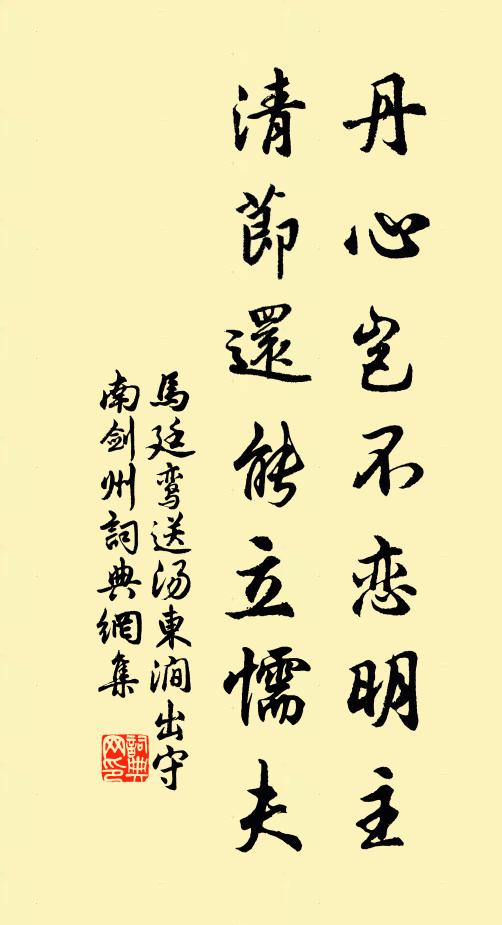 丹心岂不恋明主
清節還能立懦夫
馬廷鸾送汤東澗出守
南剑州詞典網集
詞典網印